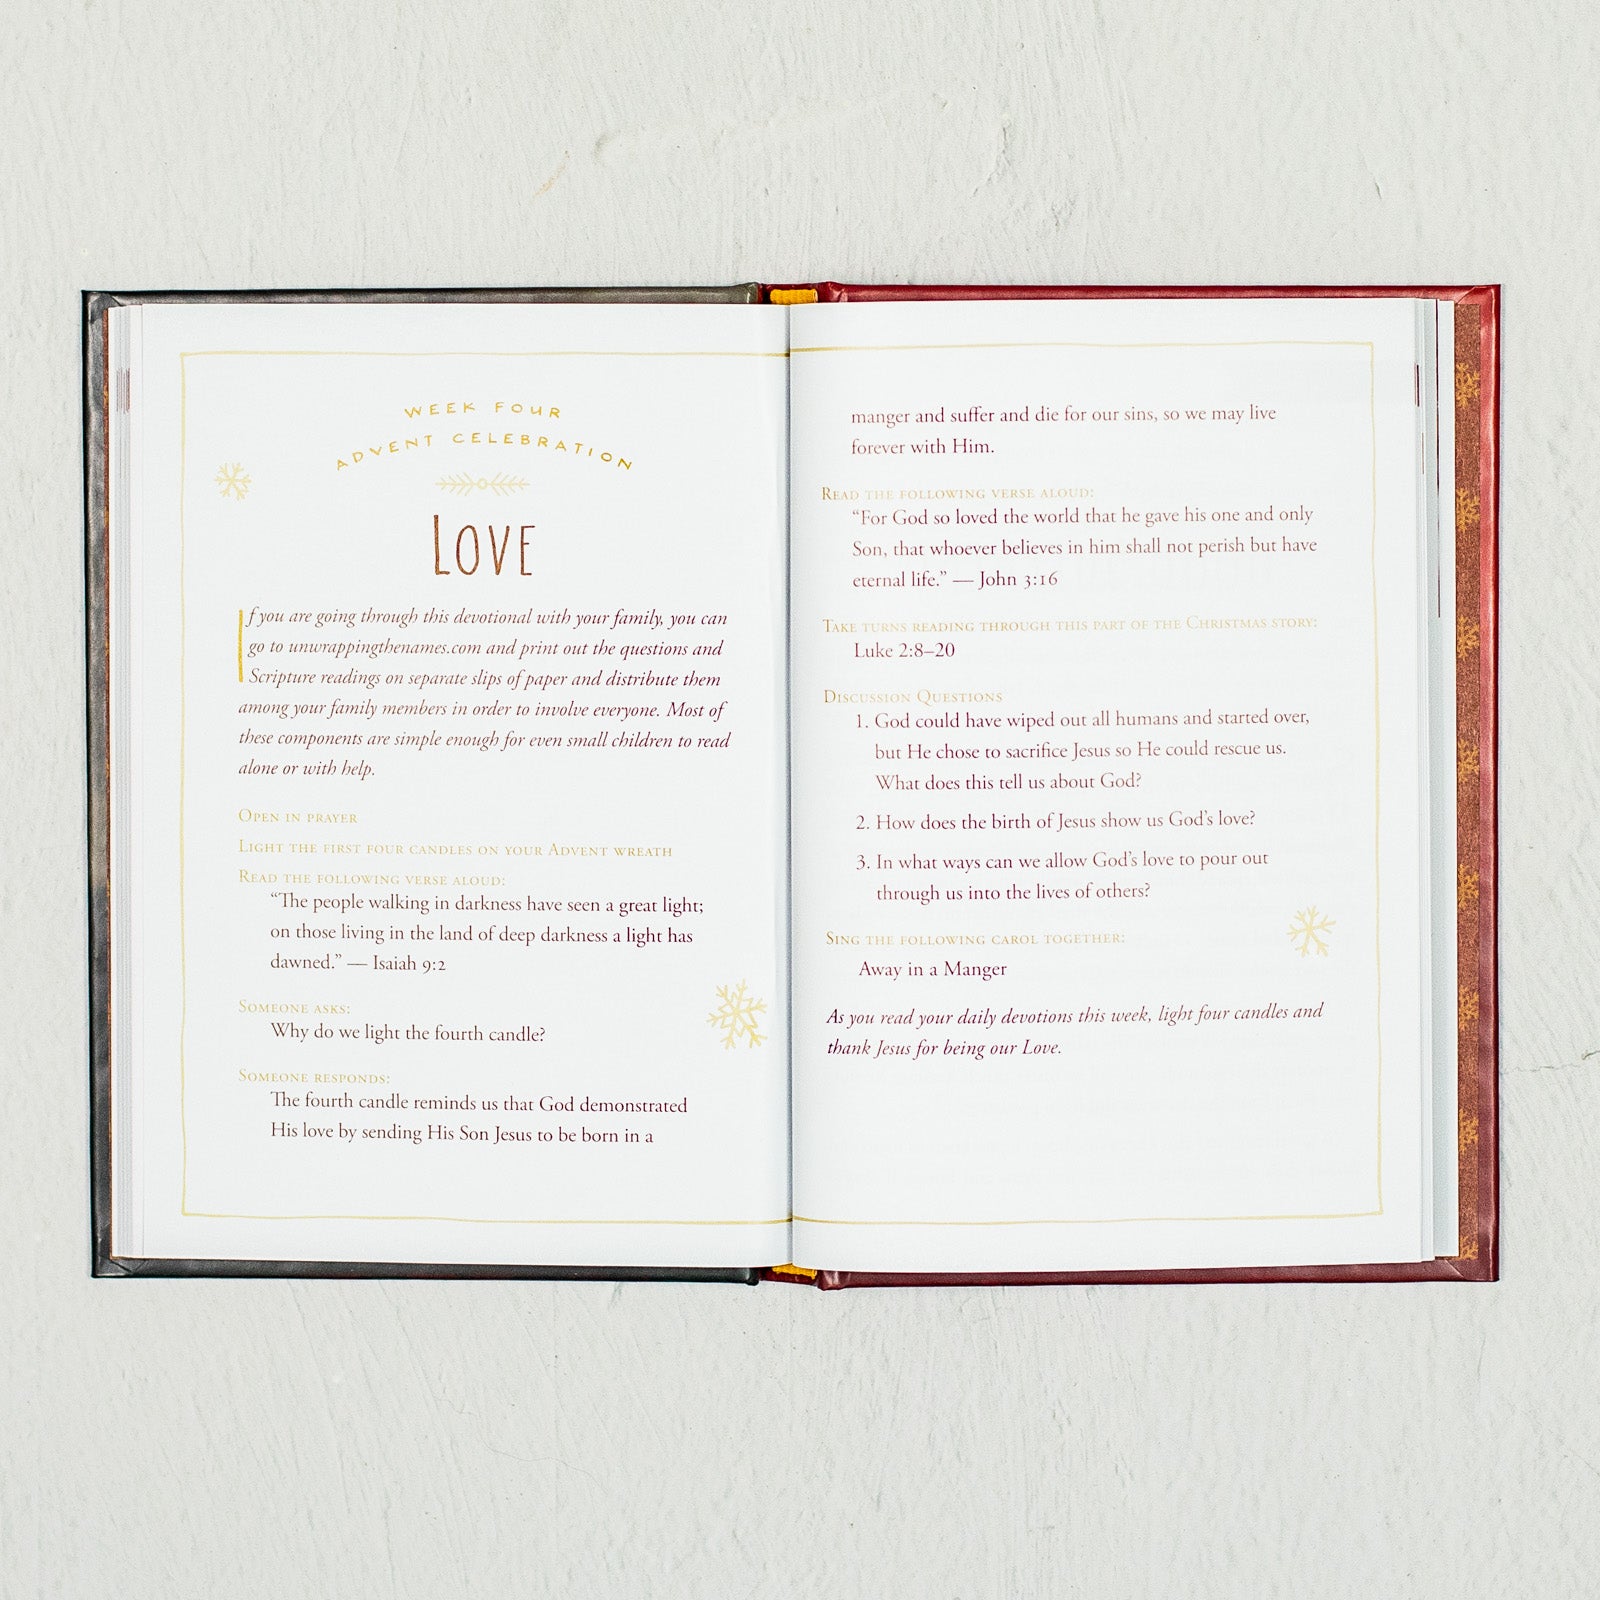 WEEK FOUR
ADVENT CELEBRATION
LOVE
If you are going through this devotional with your family, you can
go to unwrappingthenames.com and print out the questions and
Scripture readings on separate slips of paper and distribute them
among your family members in order to involve everyone. Most of
these components are simple enough for even small children to read
alone or with help.
OPEN IN PRAYER
LIGHT THE FIRST FOUR CANDLES ON YOUR ADVENT WREATH
READ THE FOLLOWING VERSE ALOUD:
“The people walking in darkness have seen a great light;
on those living in the land of deep darkness a light has
dawned.” — Isaiah 9:2
SOMEONE ASKS:
Why do we light the fourth candle?
SOMEONE RESPONDS:
The fourth candle reminds us that God demonstrated
His love by sending His Son Jesus to be born in a
manger and suffer and die for our sins, so we may live
forever with Him.
READ THE FOLLOWING VERSE ALOUD:
“For God so loved the world that he gave his one and only
Son, that whoever believes in him shall not perish but have
eternal life.” — John 3:16
TAKE TURNS READING THROUGH THIS PART OF THE CHRISTMAS STORY:
Luke 2:8–20
DISCUSSION QUESTIONS
1. God could have wiped out all humans and started over,
but He chose to sacrifice Jesus so He could rescue us.
What does this tell us about God?
2. How does the birth of Jesus show us God’s love?
3. In what ways can we allow God’s love to pour out
through us into the lives of others?
SING THE FOLLOWING CAROL TOGETHER:
Away in a Manger
As you read your daily devotions this week, light four candles and
thank Jesus for being our Love.